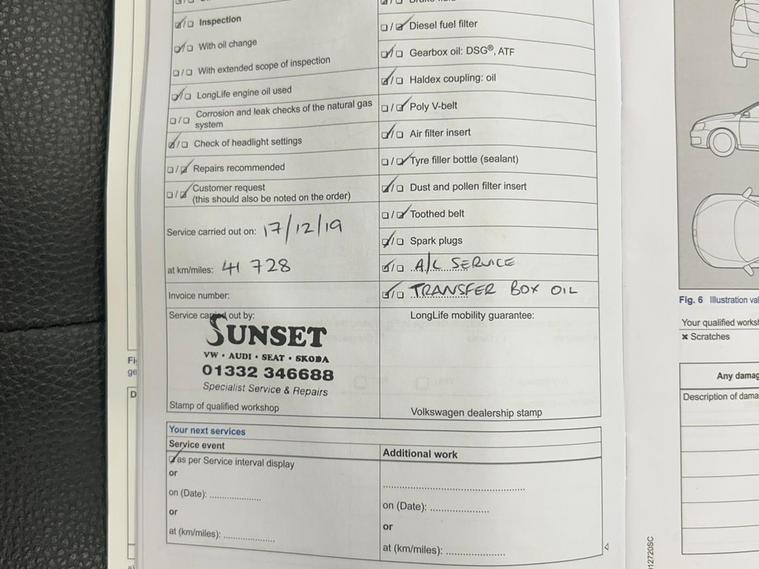 Inspection
With oil change
With extended scope of inspection
LongLife engine oil used
Corrosion and leak checks of the natural gas
system
Check of headlight settings
Repairs recommended
Customer request
(this should also be noted on the order)
Service carried out on: 17/12/19
at km/miles: 41 728
Invoice number:
Service carried out by:
SUNSET
VW • AUDI • SEAT • SKODA
01332 346688
Specialist Service & Repairs
Stamp of qualified workshop
Diesel fuel filter
Gearbox oil: DSG®, ATF
Haldex coupling: oil
Poly V-belt
Air filter insert
Tyre filler bottle (sealant)
Dust and pollen filter insert
Toothed belt
Spark plugs
A/C SERVICE
TRANSFER BOX OIL
LongLife mobility guarantee:
Volkswagen dealership stamp
Your next services
Service event
as per Service interval display
or
on (Date):
or
at (km/miles):
Additional work
on (Date):
or
at (km/miles):
Fig. 6 Illustration
Your qualified
Scratches
Any
Description of